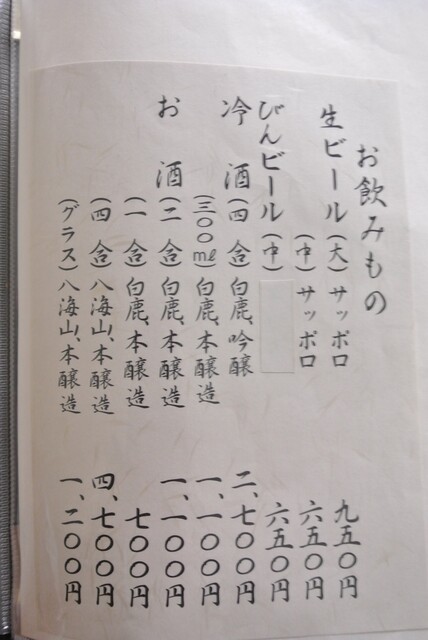 お飲みもの
生ビール(大)サッポロ 九五〇円
(中)サッポロ 六五〇円
びんビール(中) 六五〇円
冷酒(四合)白鹿、吟醸 二、七〇〇円
(三〇〇ml)白鹿、本醸造 一、一〇〇円
お酒(二合)白鹿、本醸造 一、一〇〇円
(一合)白鹿、本醸造 七〇〇円
(四合)八海山、本醸造 四、七〇〇円
(グラス)八海山、本醸造 一、二〇〇円